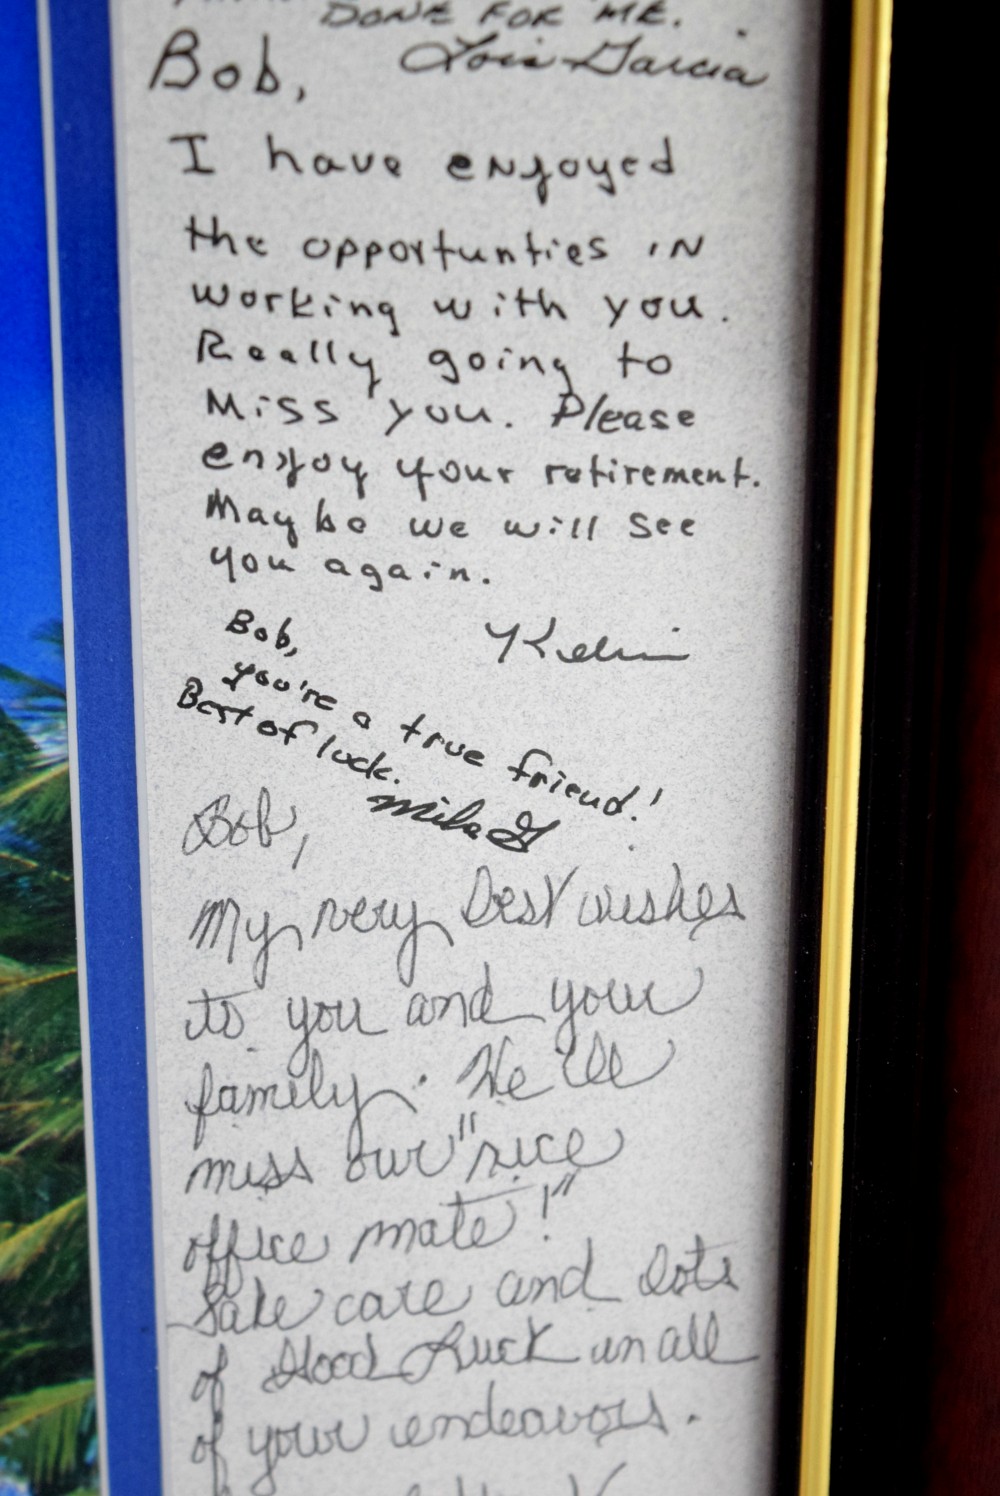 DONE FOR ME.
Lois Garcia
Bob,
I have enjoyed
the opportunties in
working with you.
Really going to
Miss you. Please
enjoy your retirement.
Maybe we will see
you again.
Kelvin
Bob,
You're a true friend!
Best of luck.
Mike G
Bob,
My very best wishes
to you and your
family. We'll
miss our "nice
office mate!"
Take care and lots
of Good Luck in all
of your endeavors.